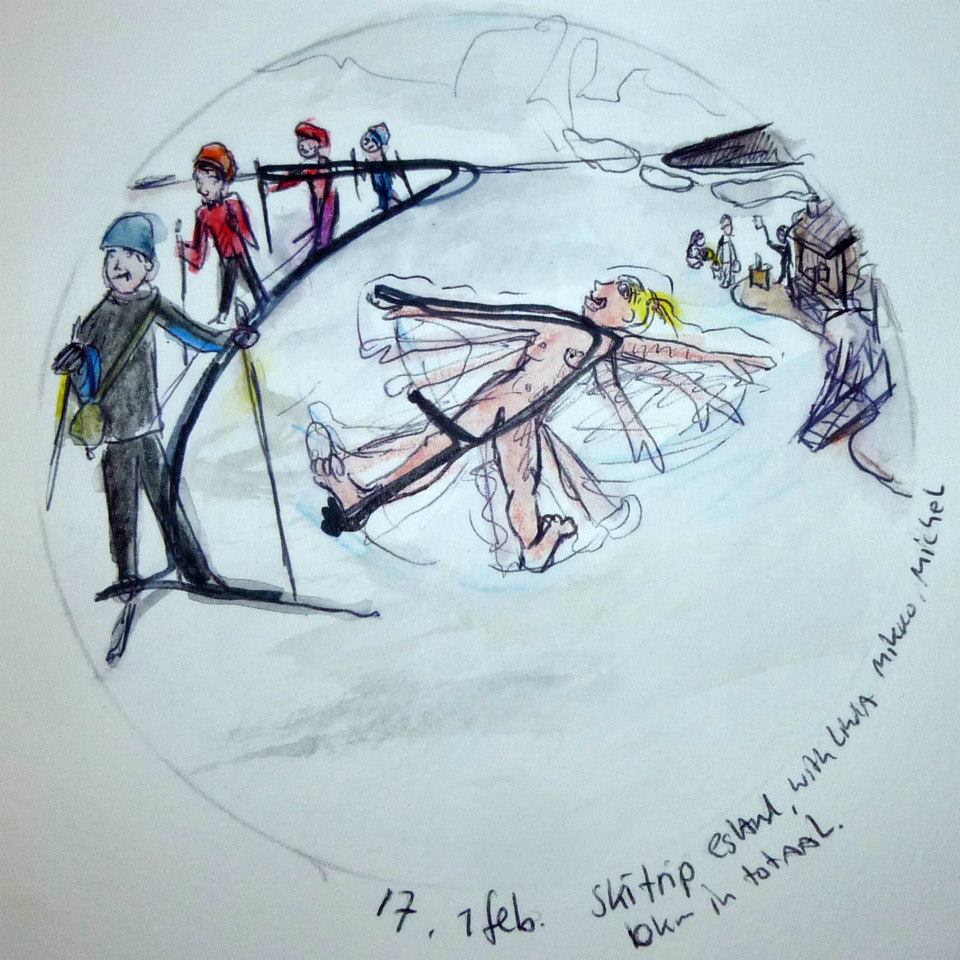 17, 1 feb. skitrip esland, with Linda mikko, Michel
10km in totaAL.